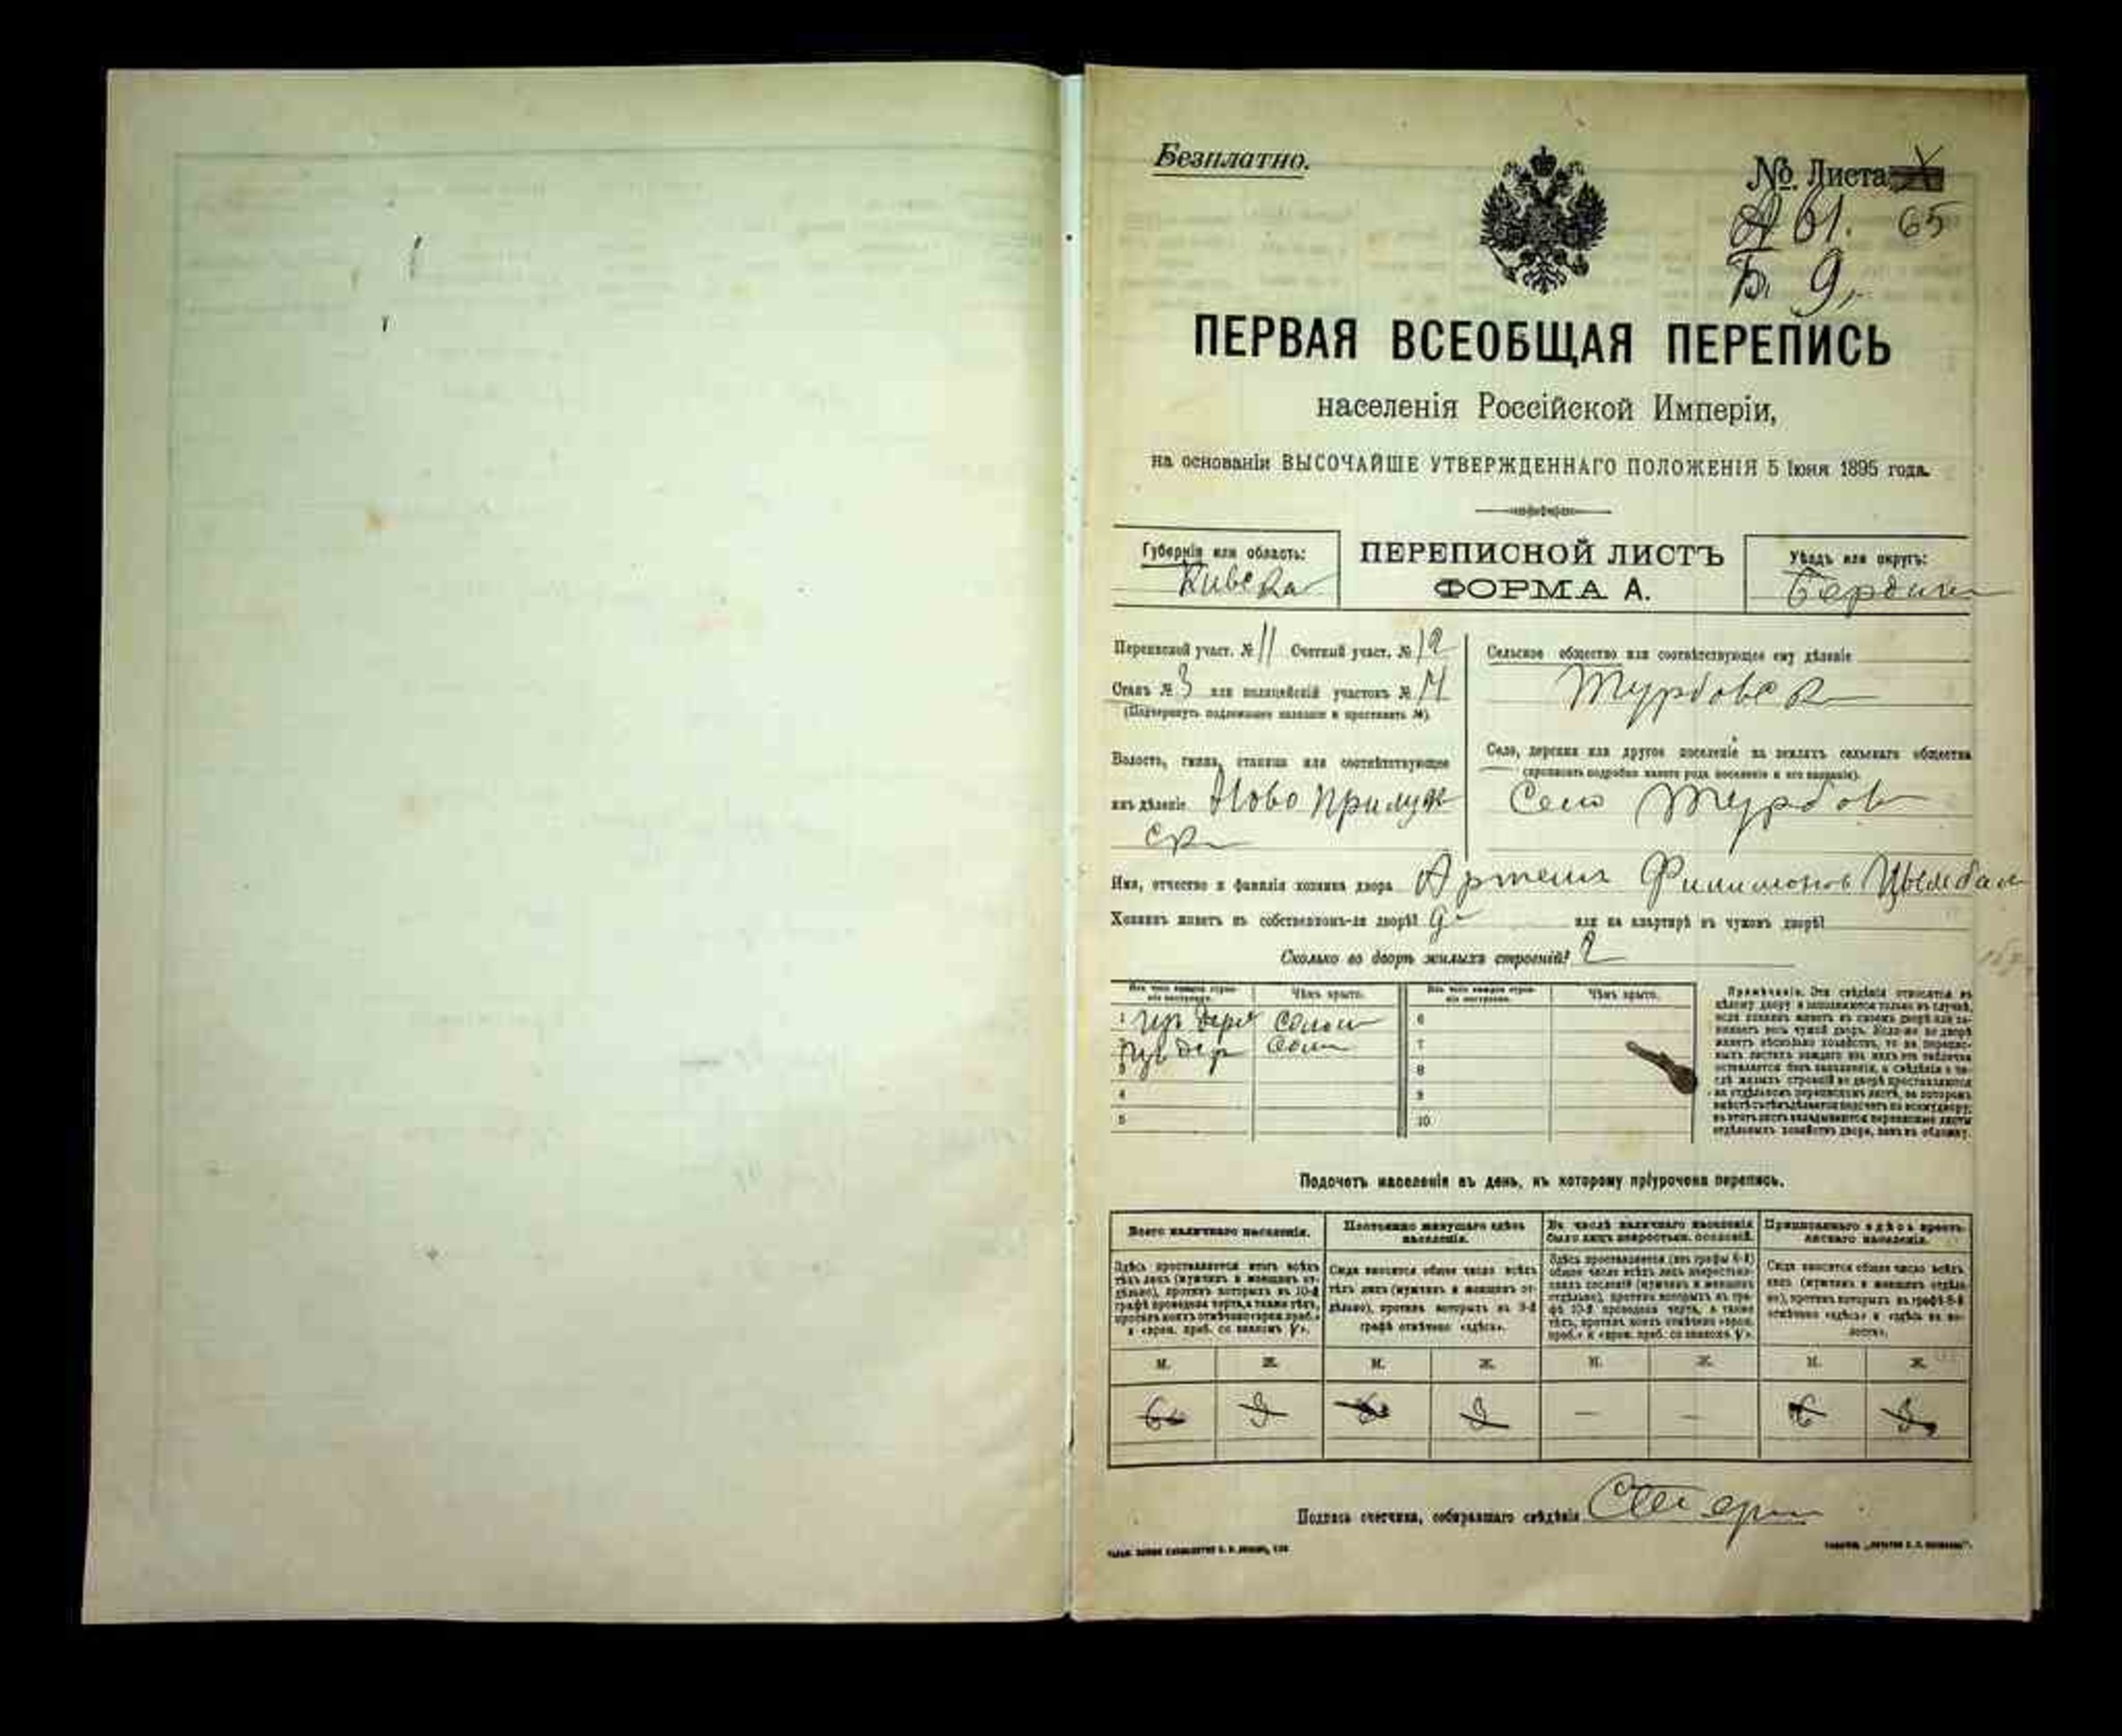 Безплатно.
№ Листа
А 61. 65
Б. 9,
ПЕРВАЯ ВСЕОБЩАЯ ПЕРЕПИСЬ
населенія Россійской Имперіи,
на основаніи ВЫСОЧАЙШЕ УТВЕРЖДЕННАГО ПОЛОЖЕНІЯ 5 Іюня 1895 года.
Губернія или область:
ПЕРЕПИСНОЙ ЛИСТЪ
ФОРМА А.
Уѣздъ или округъ:
Переписной участ. № 11 Счетный участ. № 12
Станъ № 3 или полицейскій участокъ №
(Подчеркнуть подлежащее названіе и проставить №).
Волость, гмина, станица или соотвѣтствующее
имъ дѣленіе Ново Прилук
ск
Сельское общество или соотвѣтствующее ему дѣленіе
Турбовск
Село, деревня или другое поселеніе на земляхъ сельскаго общества
(прописать подробно какого рода поселеніе и его названіе).
Село Турбов
Имя, отчество и фамилія хозяина двора Артем Филимонов Цымбал
Хозяинъ живетъ въ собственномъ-ли дворѣ? или на квартирѣ въ чужомъ дворѣ?
Сколько во дворѣ жилыхъ строеній? 2
Изъ чего каждое строеніе построено. Чѣмъ крыто. Изъ чего каждое строеніе построено. Чѣмъ крыто.
1 6
7
3 8
4 9
5 10
Примѣчаніе. Эти свѣдѣнія относятся къ
цѣлому двору и заполняются только въ случаѣ,
если хозяинъ живетъ въ своемъ дворѣ или за-
нимаетъ весь чужой дворъ. Если-же во дворѣ
живетъ нѣсколько хозяйствъ, то на перепис-
ныхъ листахъ каждаго изъ нихъ эта табличка
оставляется безъ заполненія, а свѣдѣнія о чи-
слѣ жилыхъ строеній во дворѣ проставляются
на отдѣльномъ переписномъ листѣ, на которомъ
вмѣстѣ съ тѣмъ дѣлается подсчетъ по всему двору;
въ этотъ листъ вкладываются переписные листы
отдѣльныхъ хозяйствъ двора, какъ въ обложку.
Подсчетъ населенія въ день, къ которому пріурочена перепись.
Всего наличнаго населенія. Постоянно живущаго здѣсь населенія. Въ числѣ наличнаго населенія было лицъ некрестьян. сословій. Приписаннаго здѣсь крестьянскаго населенія.
Здѣсь проставляется итогъ всѣхъ
тѣхъ лицъ (мужчинъ и женщинъ от-
дѣльно), противъ которыхъ въ 10-й
графѣ проведена черта, а также тѣхъ,
противъ коихъ отмѣчено «врем. преб.»
и «врем. преб. со знакомъ V».
Сюда вносится общее число всѣхъ
тѣхъ лицъ (мужчинъ и женщинъ от-
дѣльно), противъ которыхъ въ 9-й
графѣ отмѣчено «здѣсь».
Здѣсь проставляется (изъ графы 4-й)
общее число всѣхъ лицъ некрестьян-
скихъ сословій (мужчинъ и женщинъ
отдѣльно), противъ которыхъ въ гра-
фѣ 10-й проведена черта, а также
тѣхъ, противъ коихъ отмѣчено «врем.
преб.» и «врем. преб. со знакомъ V».
Сюда вносится общее число всѣхъ
лицъ (мужчинъ и женщинъ отдѣль-
но), противъ которыхъ въ графѣ 8-й
отмѣчено «здѣсь» и «здѣсь въ во-
лости».
М. Ж. М. Ж. М. Ж. М. Ж.
— —
Подпись счетчика, собиравшаго свѣдѣнія